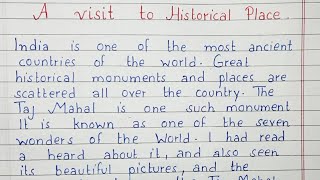 A visit to Historical Place.
India is one of the most ancient
countries of the world. Great
historical monuments and places are
scattered all over the country. The
Taj Mahal is one such monument
It is known as one of the seven
wonders of the World. I had read
a heard about it, and also seen
its beautiful pictures, and the
Taj Mahal